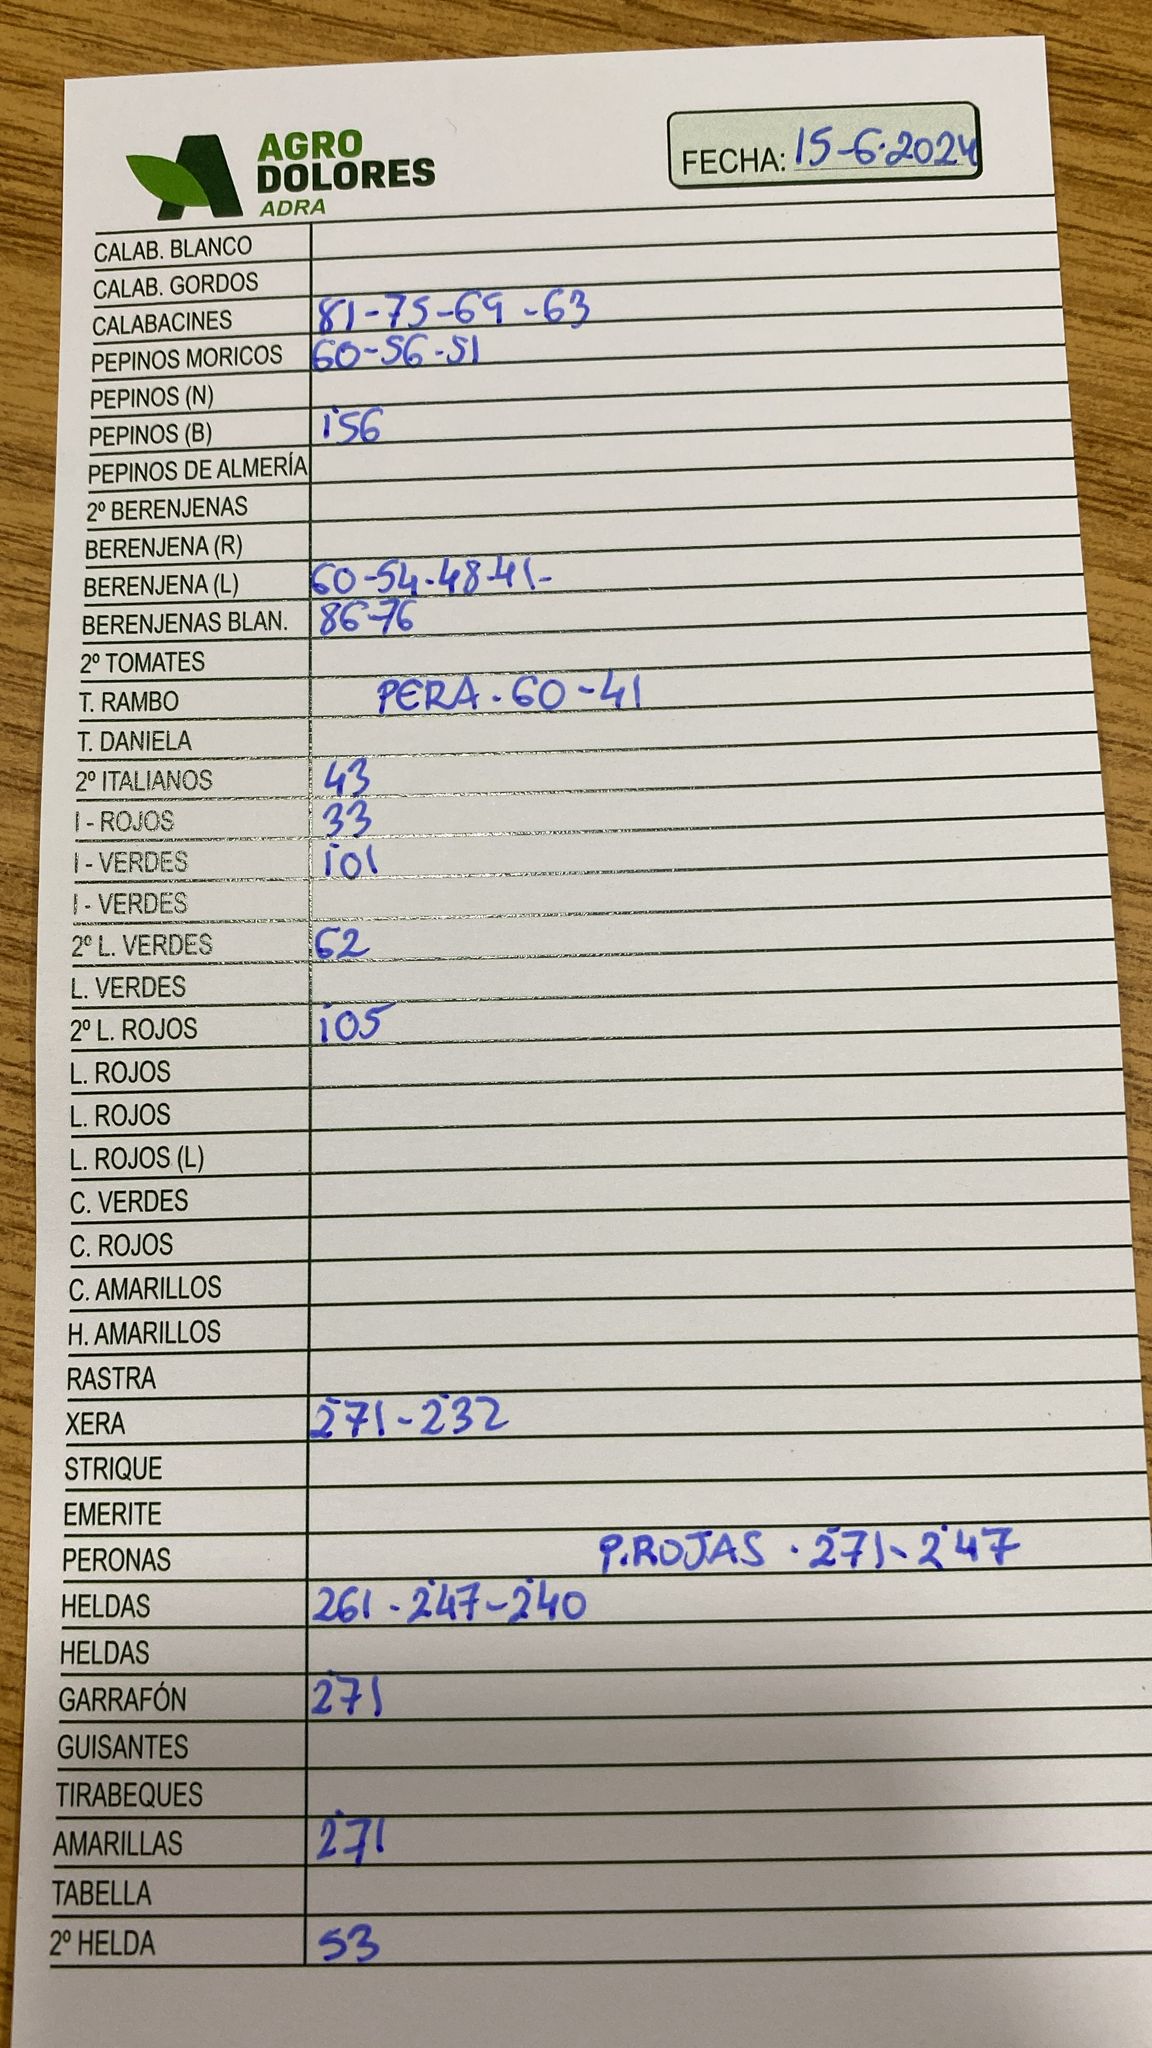 AGRO
DOLORES
ADRA
FECHA: 15-6-2024
CALAB. BLANCO
CALAB. GORDOS
CALABACINES 81-75-69-63
PEPINOS MORICOS 60-56-51
PEPINOS (N)
PEPINOS (B) 156
PEPINOS DE ALMERÍA
2º BERENJENAS
BERENJENA (R)
BERENJENA (L) 60-54-48-41-
BERENJENAS BLAN. 86-76
2º TOMATES
T. RAMBO PERA. 60-41
T. DANIELA
2º ITALIANOS 43
I - ROJOS 33
I - VERDES 101
I - VERDES
2º L. VERDES 62
L. VERDES
2º L. ROJOS 105
L. ROJOS
L. ROJOS
L. ROJOS (L)
C. VERDES
C. ROJOS
C. AMARILLOS
H. AMARILLOS
RASTRA
XERA 2'71-2'32
STRIQUE
EMERITE
PERONAS P.ROJAS . 2'71-2'47
HELDAS 261-2'47-2'40
HELDAS
GARRAFÓN 2'71
GUISANTES
TIRABEQUES
AMARILLAS 2'71
TABELLA
2º HELDA 53